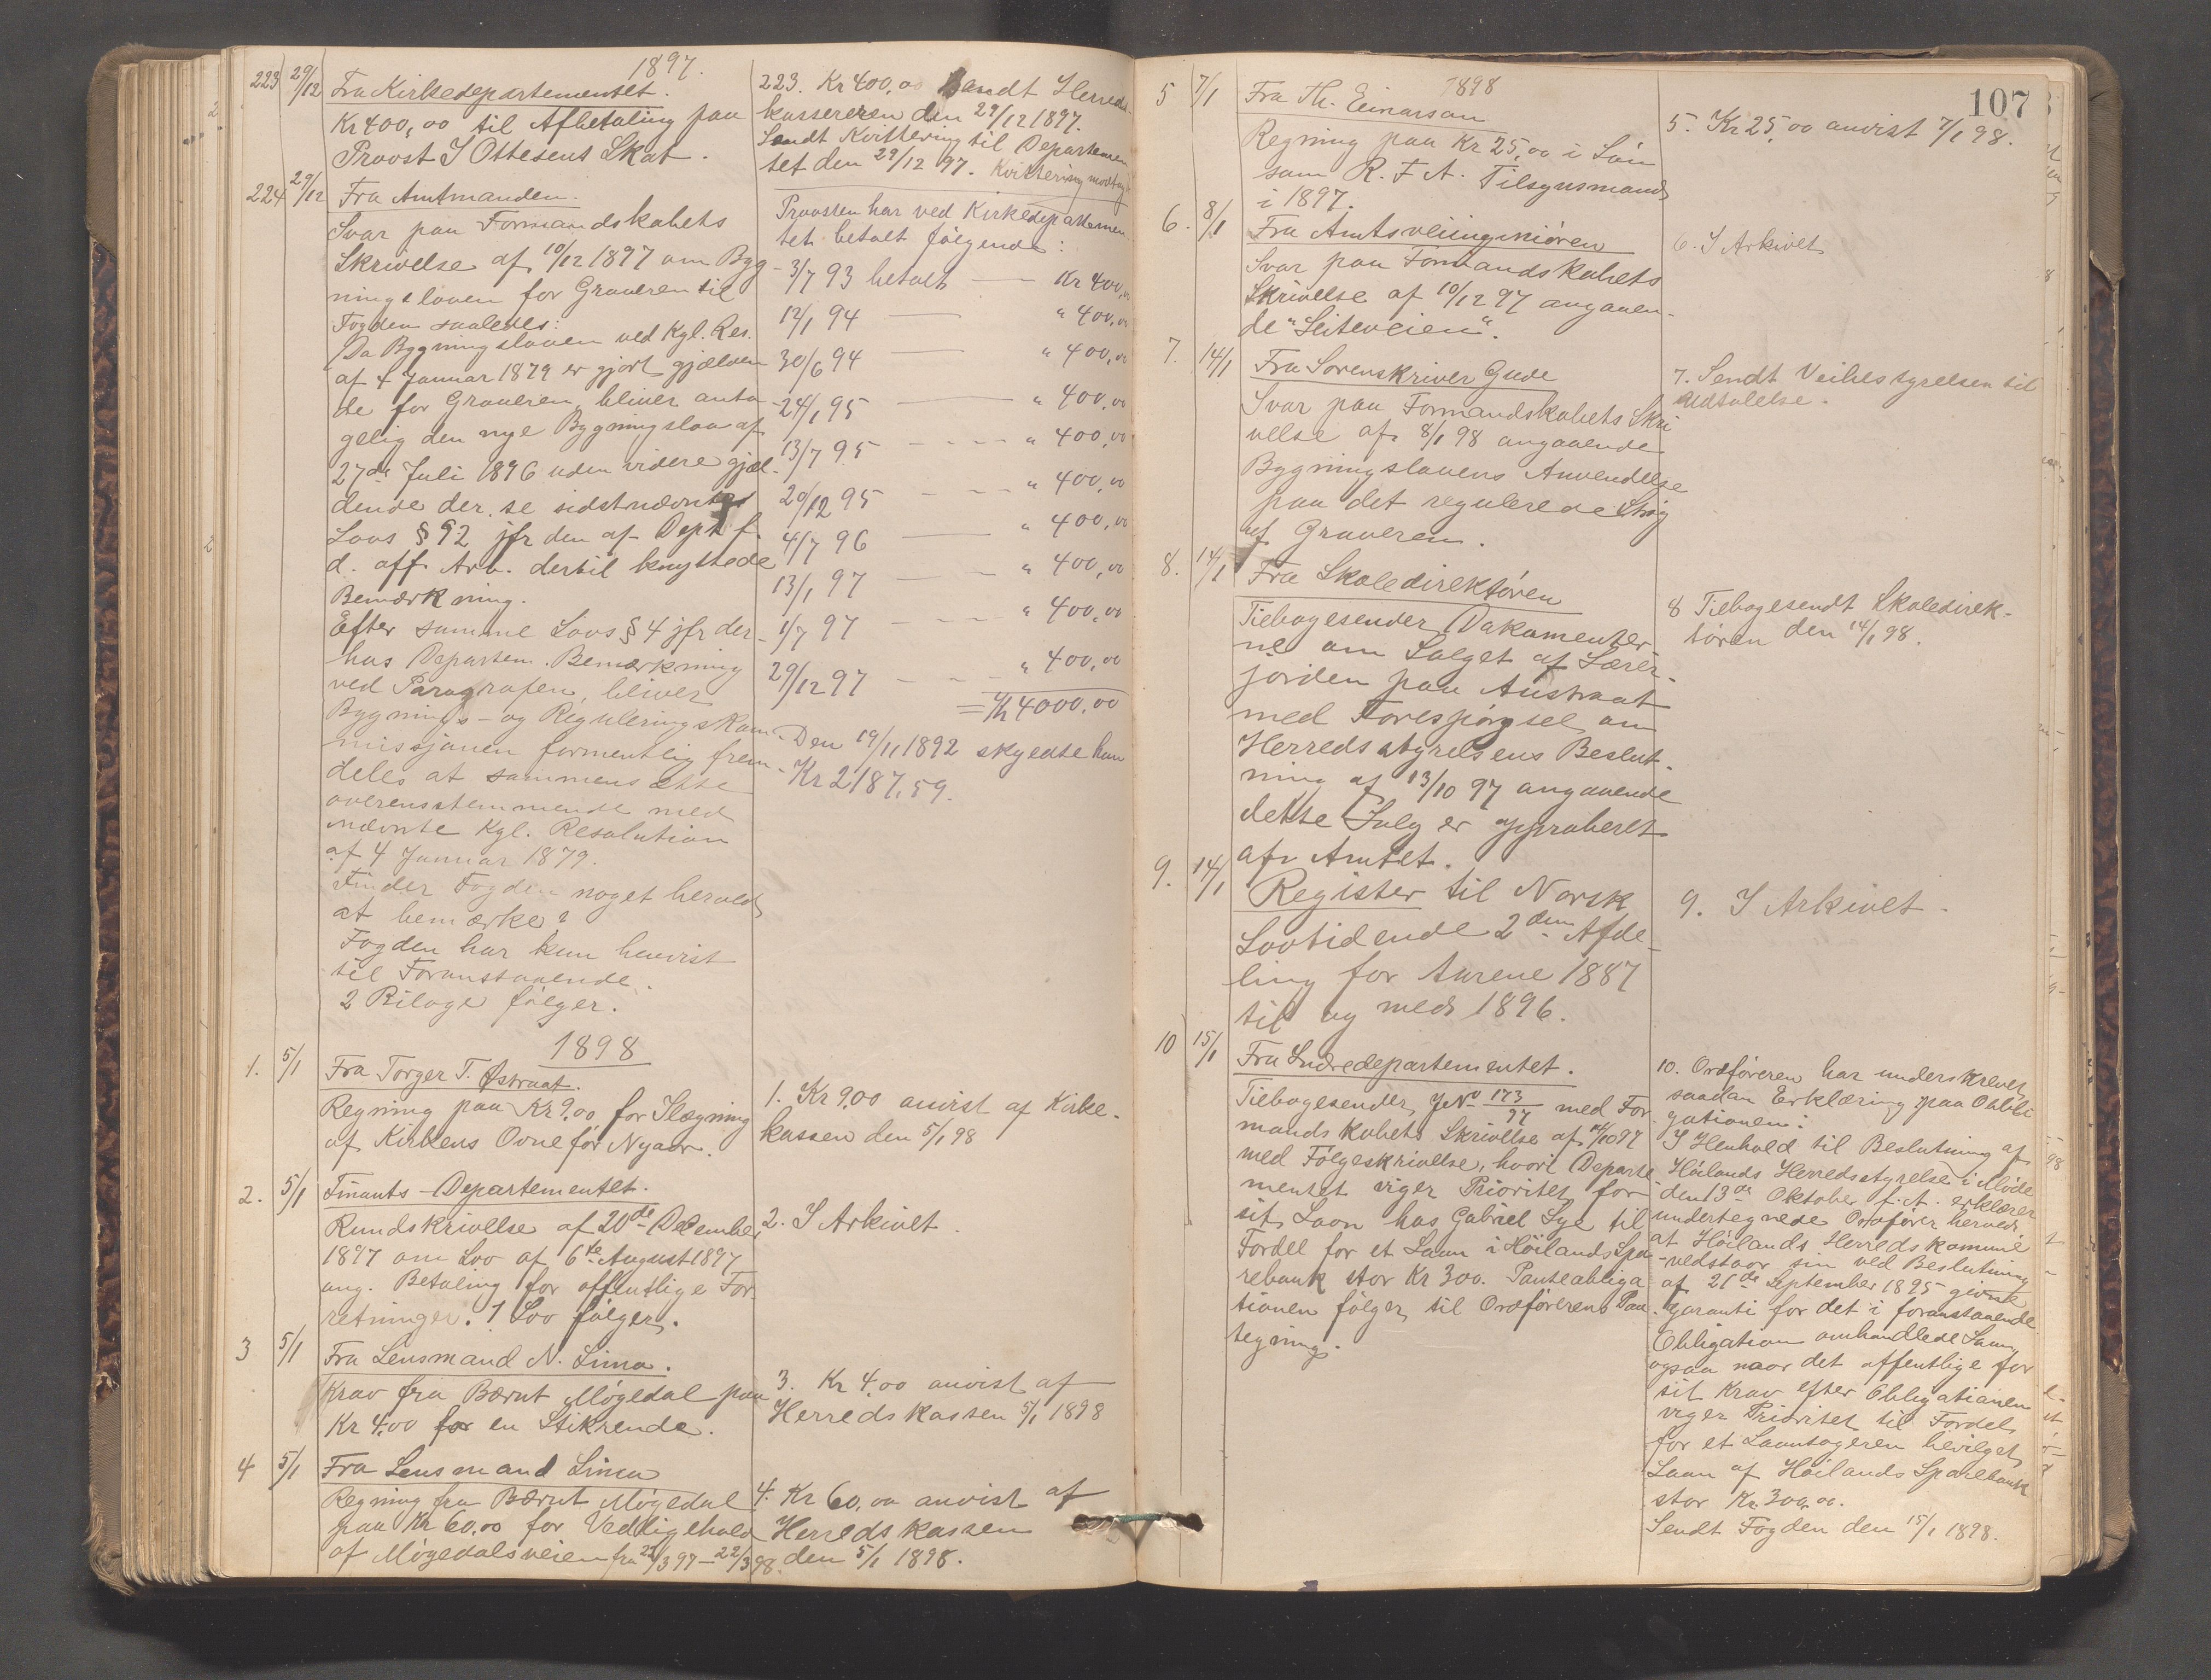 1897.
223 29/12 Fra Kirkedepartementet.
Kr 400,00 til Afbetaling paa
Provst J Ottesens Skat.
224 29/12 Fra Amtmanden.
Svar paa Formandskabets
Skrivelse af 10/12 1897 om Byg-
ningsloven for Graveren til
Fogden saaledes:
Da Bygningsloven ved Kgl. Res.
af 4 Januar 1879 er gjort gjælden
de for Graveren, bliver anta-
gelig den nye Bygningslov af
27de Juli 1896 uden videre gjæl-
dende der, se sidstnævnte
Lovs § 92 jfr den af Dept f.
d. off. Arb. dertil knyttede
Bemærkning.
Efter samme Lovs § 4 jfr der-
hos Departem. Bemærkning
ved Paragrafen, bliver
Bygnings- og Reguleringskom-
missjonen formentlig frem-
deles at sammensætte
overensstemmende med
nævnte Kgl. Resolution
af 4 Januar 1879.
Finder Fogden noget herved
at bemærke?
Fogden har kun henvist
til Foranstaaende.
2 Bilage følger.
1898
1. 5/1 Fra Torger T. Østraat.
Regning paa Kr 9.00 for Ilægning
af Kirkens Ovne før Nyaar.
2. 5/1 Finants-Departementet.
Rundskrivelse af 20de December
1897 om Lov af 6te August 1897
ang. Betaling for offentlige For-
retninger. 1 Lov følger.
3 5/1 Fra Lensmand N. Lima.
Krav fra Bærnt Møgedal paa
Kr 4.00 for en Stikrende.
4 5/1 Fra Lensmand Lima
Regning fra Bærnt Møgedal
paa Kr 60.00 for Vedligehold
af Møgedalsveien fra 22/3 97 - 22/3 98.
223. Kr 400,00 sendt Herreds-
kassereren den 29/12 1897.
Sendt Kvittering til Departemen
tet den 29/12 97. Kvittering modtag
Provsten har ved Kirkedepartemen
tet betalt følgende:
3/7 93 betalt — Kr 400,00
12/1 94 — " 400,00
30/6 94 — " 400,00
24/1 95 — " 400,00
13/7 95 - - - - " 400,00
20/12 95 - - - " 400,00
4/7 96 — " 400,00
13/1 97 - - " 400,00
1/7 97 - - - " 400,00
29/12 97 - - - " 400,00
= Kr 4000,00
Den 19/11 1892 skyldte han
Kr 2187,59.
1. Kr 9.00 anvist af Kirke-
kassen den 5/1 98
2. I Arkivet.
3. Kr 4.00 anvist af
Herredskassen 5/1 1898
4. Kr 60,00 anvist af
Herredskassen
den 5/1 1898.
107
1898
5 7/1 Fra Th. Einarsan
Regning paa Kr 25,00 i Løn
som R. F. A. Tilsynsmand
i 1897.
6. 8/1 Fra Amtsveiingeniøren
Svar paa Formandskabets
Skrivelse af 10/12 97 angaaen-
de "Leiteveien".
7. 14/1 Fra Sorenskriver Gude
Svar paa Formandskabets Skri
velse af 8/1 98 angaaende
Bygningslovens Anvendelse
paa det regulerede Strøg
af Graveren.
8. 14/1 Fra Skoledirektøren
Tilbagesender Dokumenter
ne om Salget af Lærer-
jorden paa Austraat
med Forespørgsel om
Herredsstyrelsens Beslut-
ning af 13/10 97 angaaende
dette Salg er approberet
af Amtet.
9. 14/1 Register til Norsk
Lovtidende 2den Afde-
ling for Aarene 1887
til og med 1896.
10 15/1 Fra Indredepartementet.
Tilbagesender J No 173/97 med For
mandskabets Skrivelse af 14/10 97
med Følgeskrivelse, hvori Departe
mentet viger Prioritet for
sit Laan hos Gabriel Lye til
Fordel for et Laan i Høilands Spa
rebank stor Kr 300. Panteobliga
tionen følger til Ordførerens Paa-
tegning.
5. Kr 25,00 anvist 7/1 98.
6. I Arkivet
7. Sendt Veibestyrelsen til
Udtalelse.
8 Tilbagesendt Skoledirek-
tøren den 14/1 98.
9. I Arkivet.
10. Ordføreren har underskrevet
saadan Erklæring paa Obli
gationen:
I Henhold til Beslutning af
Høilands Herredsstyrelse i Møde
den 13de Oktober f. A. erklærer
undertegnede Ordfører herved
at Høilands Herredskommune
vedstaar sin ved Beslutning
af 21de September 1895 givne
Garanti for det i foranstaaende
Obligation omhandlede Laan,
ogsaa naar det offentlige for
sit Krav efter Obligationen
viger Prioritet til Fordel
for et Laantageren bevilget
Laan af Høilands Sparebank
stor Kr. 300,00.
Sendt Fogden den 15/1 1898.